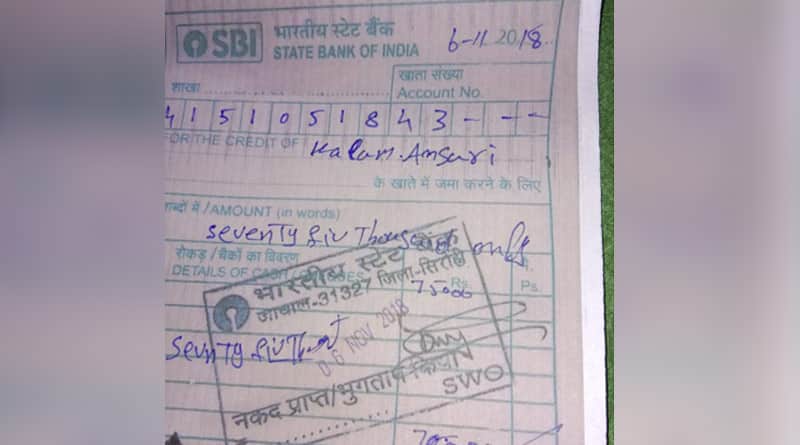 SBI भारतीय स्टेट बैंक
STATE BANK OF INDIA
6-11 2018
शाखा
खाता संख्या
Account No.
4151051843---
FOR THE CREDIT OF Kalam Ansari
के खाते में जमा करने के लिए
शब्दों में /AMOUNT (in words)
Seventy fiv Thousand only
रोकड़ /चैकों का विवरण
DETAILS OF CASH/
Rs.
Ps.
75000
भारतीय स्टेट बैंक
जावाल-31327 जिला-सिरोही
06 NOV 2018
Seventy fiv
नकद प्राप्त/भुगतान किया
SWO